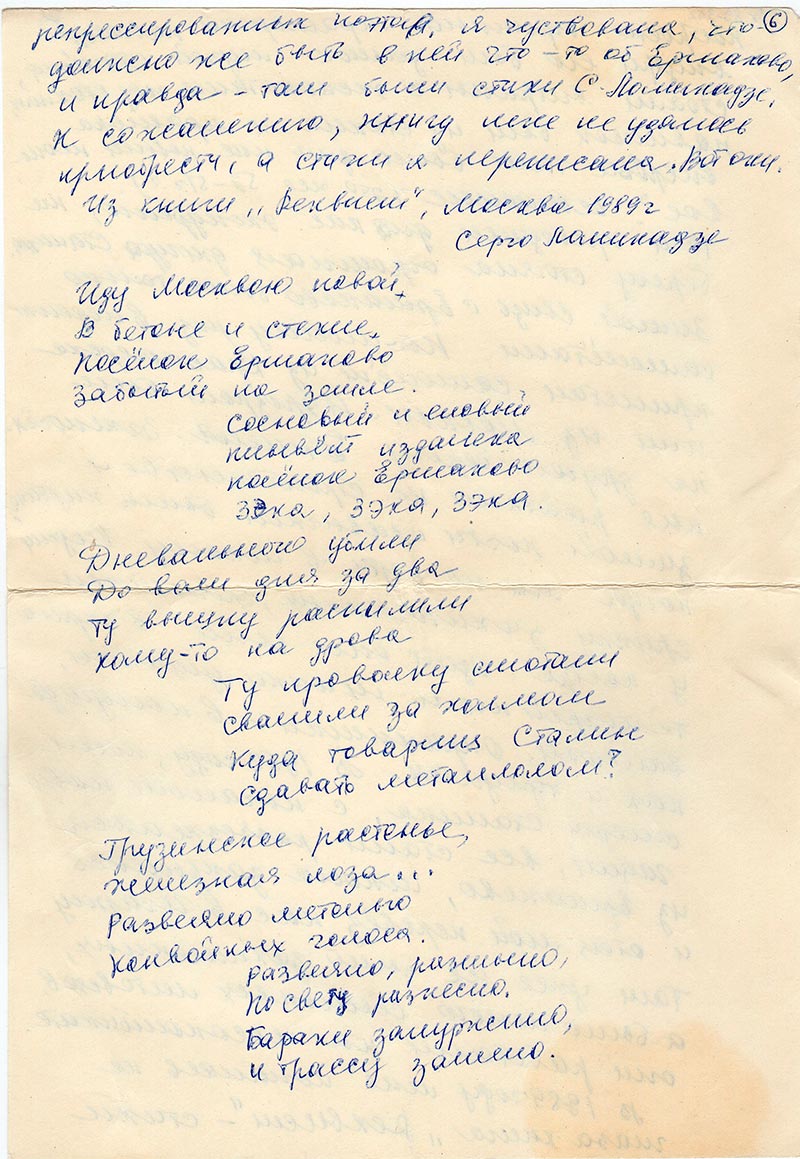 6
репрессированных поэтов, я чуствовала, что-
должно же быть в ней что-то об Ермаково,
и правда - там были стихи С. Ломинадзе.
К сожалению, книгу мне не удалось
приобрести, а стихи я переписала. Вот они.
Из книги "Реквием", Москва 1989 г
Серго Ломинадзе
Иду Москвою новой,
В бетоне и стекле,
посёлок Ермаково
Забытый на земле.
сосновый и еловый
плывёт издалека
посёлок Ермаково
Зэка, зэка, зэка.
Дневального убили
До воли дня за два
Ту вышку распилили
кому-то на дрова
Ту проволку смотали
свалили за холмом
Куда товарищ Сталин
сдавать металлолом?
Грузинское растенье,
железная лоза...
Развеяно метелью
Конвойных голоса.
Развеяно, размыто,
По свету разнесло.
Бараки запуржило,
И трассу замело.